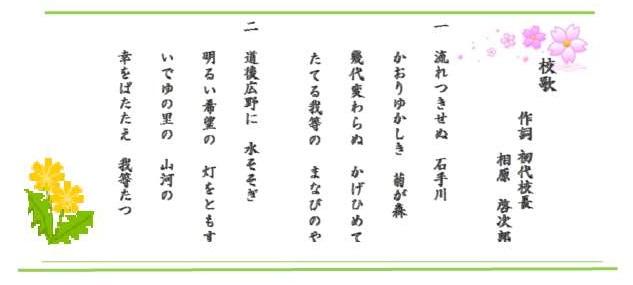 校歌
作詞 初代校長
相原 啓次郎
一 流れつきせぬ 石手川
かおりゆかしき 菊が森
幾代変わらぬ かげひめて
たてる我等の まなびのや
二 道後広野に 水そそぎ
明るい希望の 灯をともす
いでゆの里の 山河の
幸をばたたえ 我等たつ